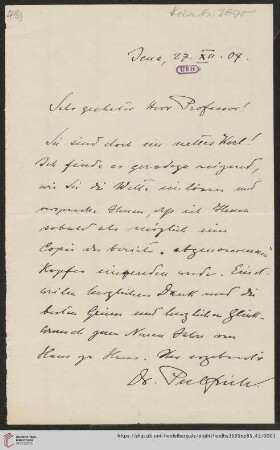 (48)
Heid. Hs. 3695
Jena, 27. XII. 04.
UBH
Sehr geehrter Herr Professor!
Sie sind doch ein netter Kerl!
Ich finde es geradezu reizend,
wie Sie die Wette einlösen und
verspreche Ihnen, daß ich Ihnen
sobald als möglich eine
Copie des bereits abgenommenen
Kopfes einsenden werde. Einst-
weilen herzlichen Dank und die
besten Grüsse und herzlichen Glück-
wunsch zum Neuen Jahre von
Haus zu Haus. Ihr ergebenster
Dr. Pulfrich.
http://digi.ub.uni-heidelberg.de/diglit/heidhs3695ez85_41/0001